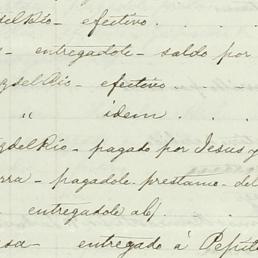 delRio - efectivo. . .
- entregadole - saldo por
gdelRio - efectivo. . .
" idem . . .
gdelRio - pagado por Jesus y
rra - pagadole prestamo del
entregadole al/ . .
sa entregado á Pepit